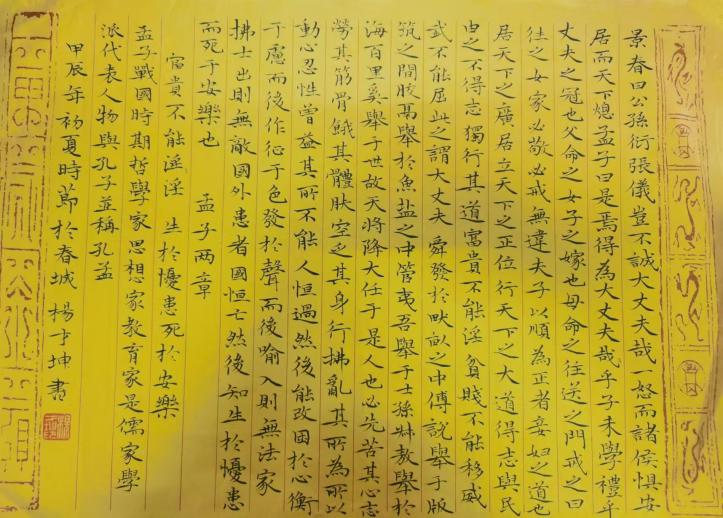 景春曰公孫衍張儀豈不誠大丈夫哉一怒而諸侯懼安
居而天下熄孟子曰是焉得為大丈夫哉乎子未學禮乎
丈夫之冠也父命之女子之嫁也母命之往送之門戒之曰
往之女家必敬必戒無違夫子以順為正者妾婦之道也
居天下之廣居立天下之正位行天下之大道得志與民
由之不得志獨行其道富貴不能淫貧賤不能移威
武不能屈此之謂大丈夫 舜發於畎畝之中傅說舉于版
筑之間膠鬲舉於魚盐之中管夷吾舉于士孫叔敖舉於
海百里奚舉于世故天將降大任于是人也必先苦其心志
勞其筋骨餓其體肤空乏其身行拂亂其所為所以
動心忍性曾益其所不能人恒過然後能改困於心衡
于慮而後作征于色發於聲而後喻入則無法家
拂士出則無敵國外患者國恒亡然後知生於憂患
而死于安樂也 孟子两章
富貴不能淫淫 生於憂患死於安樂
孟子戰國時期哲學家思想家教育家是儒家學
派代表人物與孔子並稱孔孟
甲辰年初夏時節於春城 楊才坤書